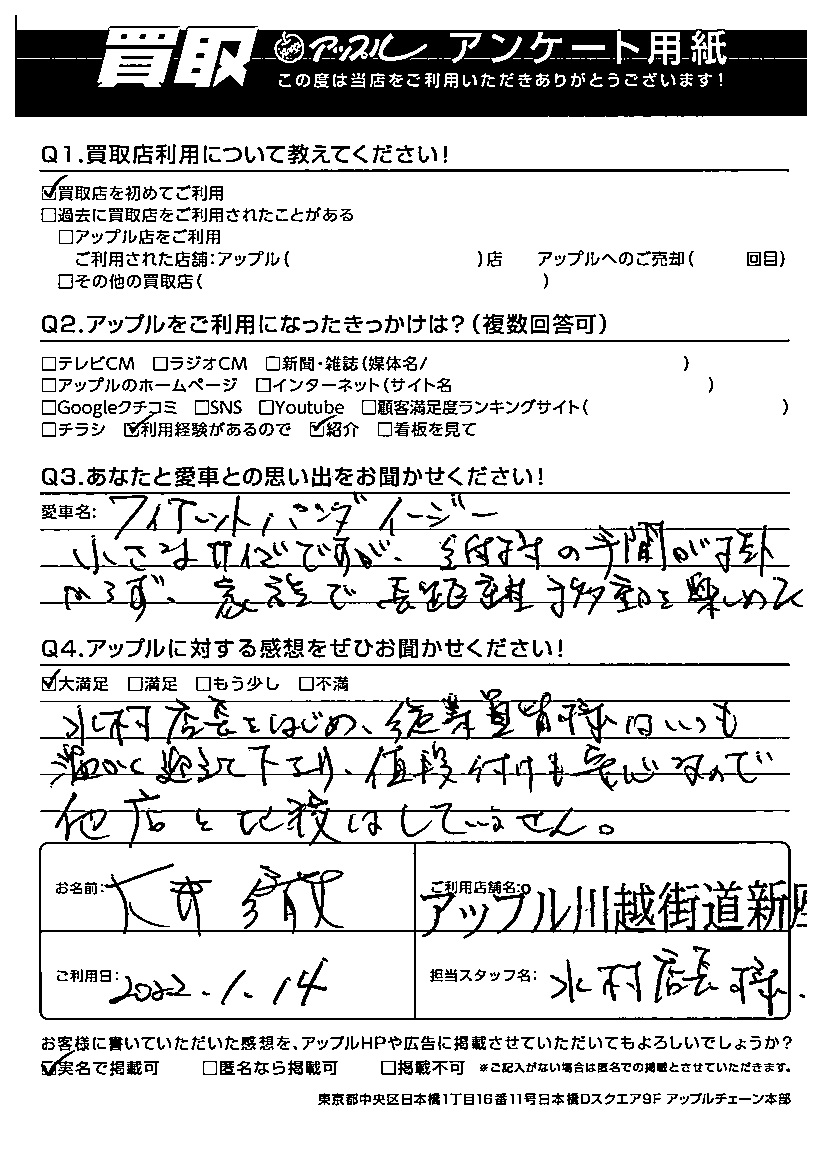 買取 アップル アンケート用紙
この度は当店をご利用いただきありがとうございます!
Q1.買取店利用について教えてください!
☑買取店を初めてご利用
□過去に買取店をご利用されたことがある
□アップル店をご利用
ご利用された店舗:アップル( )店 アップルへのご売却( 回目)
□その他の買取店( )
Q2.アップルをご利用になったきっかけは?(複数回答可)
□テレビCM □ラジオCM □新聞・雑誌(媒体名/ )
□アップルのホームページ □インターネット(サイト名 )
□Googleクチコミ □SNS □Youtube □顧客満足度ランキングサイト( )
□チラシ ☑利用経験があるので ☑紹介 □看板を見て
Q3.あなたと愛車との思い出をお聞かせください!
愛車名: フィアットパンダイージー
小さなサイズですが、給付の手間が掛
からず、家族で長距離移動を楽しめて
Q4.アップルに対する感想をぜひお聞かせください!
☑大満足 □満足 □もう少し □不満
水村店長をはじめ、従業員皆様はいつも
温かく迎えて下さり、値段付けも安心なので
他店と比較はしていません。
お名前: 大井
ご利用店舗名:
アップル川越街道新座
ご利用日: 2022.1.14
担当スタッフ名: 水村店長様.
お客様に書いていただいた感想を、アップルHPや広告に掲載させていただいてもよろしいでしょうか?
☑実名で掲載可 □匿名なら掲載可 □掲載不可 ※ご記入がない場合は匿名での掲載とさせていただきます。
東京都中央区日本橋1丁目16番11号日本橋Dスクエア9F アップルチェーン本部